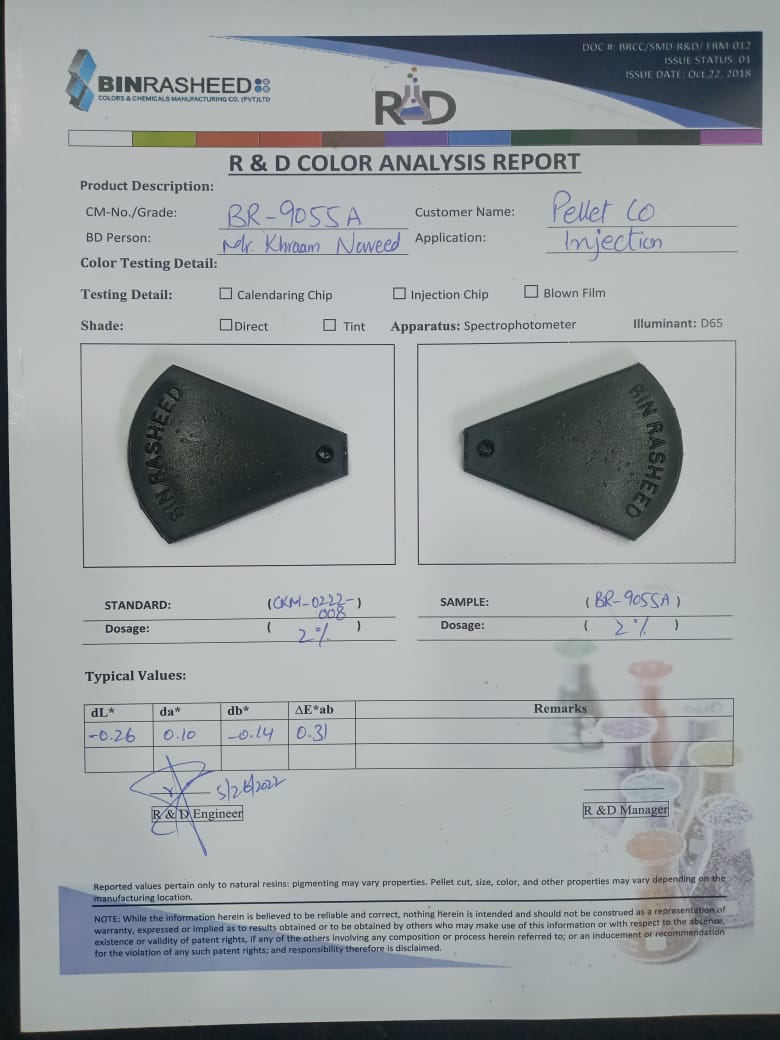 DOC #: BRCC/SMD-R&D/ FRM-012
ISSUE STATUS: 01
ISSUE DATE: Oct.22, 2018
BINRASHEED
COLORS & CHEMICALS MANUFACTURING CO. (PVT)LTD
R&D
R & D COLOR ANALYSIS REPORT
Product Description:
CM-No./Grade: BR-9055A Customer Name: Pellet Co
BD Person: Mr. Khraam Naweed Application: Injection
Color Testing Detail:
Testing Detail: ☐ Calendaring Chip ☐ Injection Chip ☐ Blown Film
Shade: ☐ Direct ☐ Tint Apparatus: Spectrophotometer Illuminant: D65
BIN RASHEED
BIN RASHEED
STANDARD: (CKM-0222-008) SAMPLE: (BR-9055A)
Dosage: ( 2% ) Dosage: ( 2% )
Typical Values:
dL* da* db* ΔE*ab Remarks
-0.26 0.10 -0.14 0.31
5/26/2022
R & D Engineer R &D Manager
Reported values pertain only to natural resins: pigmenting may vary properties. Pellet cut, size, color, and other properties may vary depending on the
manufacturing location.
NOTE: While the information herein is believed to be reliable and correct, nothing Herein is intended and should not be construed as a representation of
warranty, expressed or implied as to results obtained or to be obtained by others who may make use of this information or with respect to the absence,
existence or validity of patent rights, if any of the others involving any composition or process herein referred to; or an inducement or recommendation
for the violation of any such patent rights; and responsibility therefore is disclaimed.